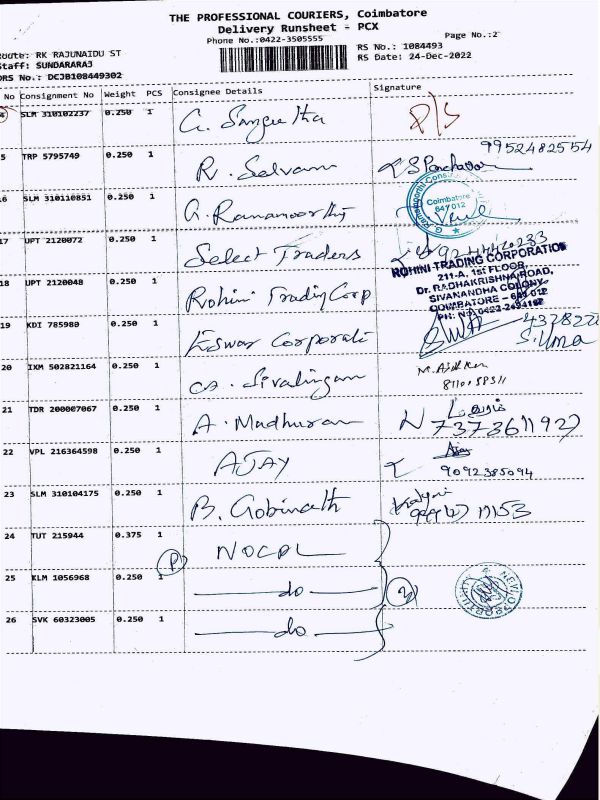 THE PROFESSIONAL COURIERS, Coimbatore
Delivery Runsheet - PCX
Phone No.:0422-3505555
Page No.:2
Route: RK RAJUNAIDU ST
RS No.: 1084493
Staff: SUNDARARAJ
RS Date: 24-Dec-2022
DRS No.: DCJB108449302
No Consignment No Weight PCS Consignee Details Signature
SLM 310102237 0.250 1 G. Sangeetha P/S
5 TRP 5795749 0.250 1 R. Selvam 9952482554
16 SLM 310110851 0.250 1 G. Ramamoorthy
Coimbatore
641 012
17 UPT 2120072 0.250 1 Select Traders
18 UPT 2120048 0.250 1 Rohini Trading Corp
ROHINI TRADING CORPORATION
211-A, 1st FLOOR,
Dr. RADHAKRISHNA ROAD,
SIVANANDHA COLONY
COIMBATORE - 641 012
19 KDI 785980 0.250 1 Eswar Corporati
S. Uma
20 IXM 502821164 0.250 1 Sivalingam
21 TDR 200007067 0.250 1 A. Madhuran
22 VPL 216364598 0.250 1 AJAY
9092385094
23 SLM 310104175 0.250 1 B. Gobinath
24 TUT 215944 0.375 1 NOCPL
P
25 KLM 1056968 0.250 1 do 3
26 SVK 60323005 0.250 1 do